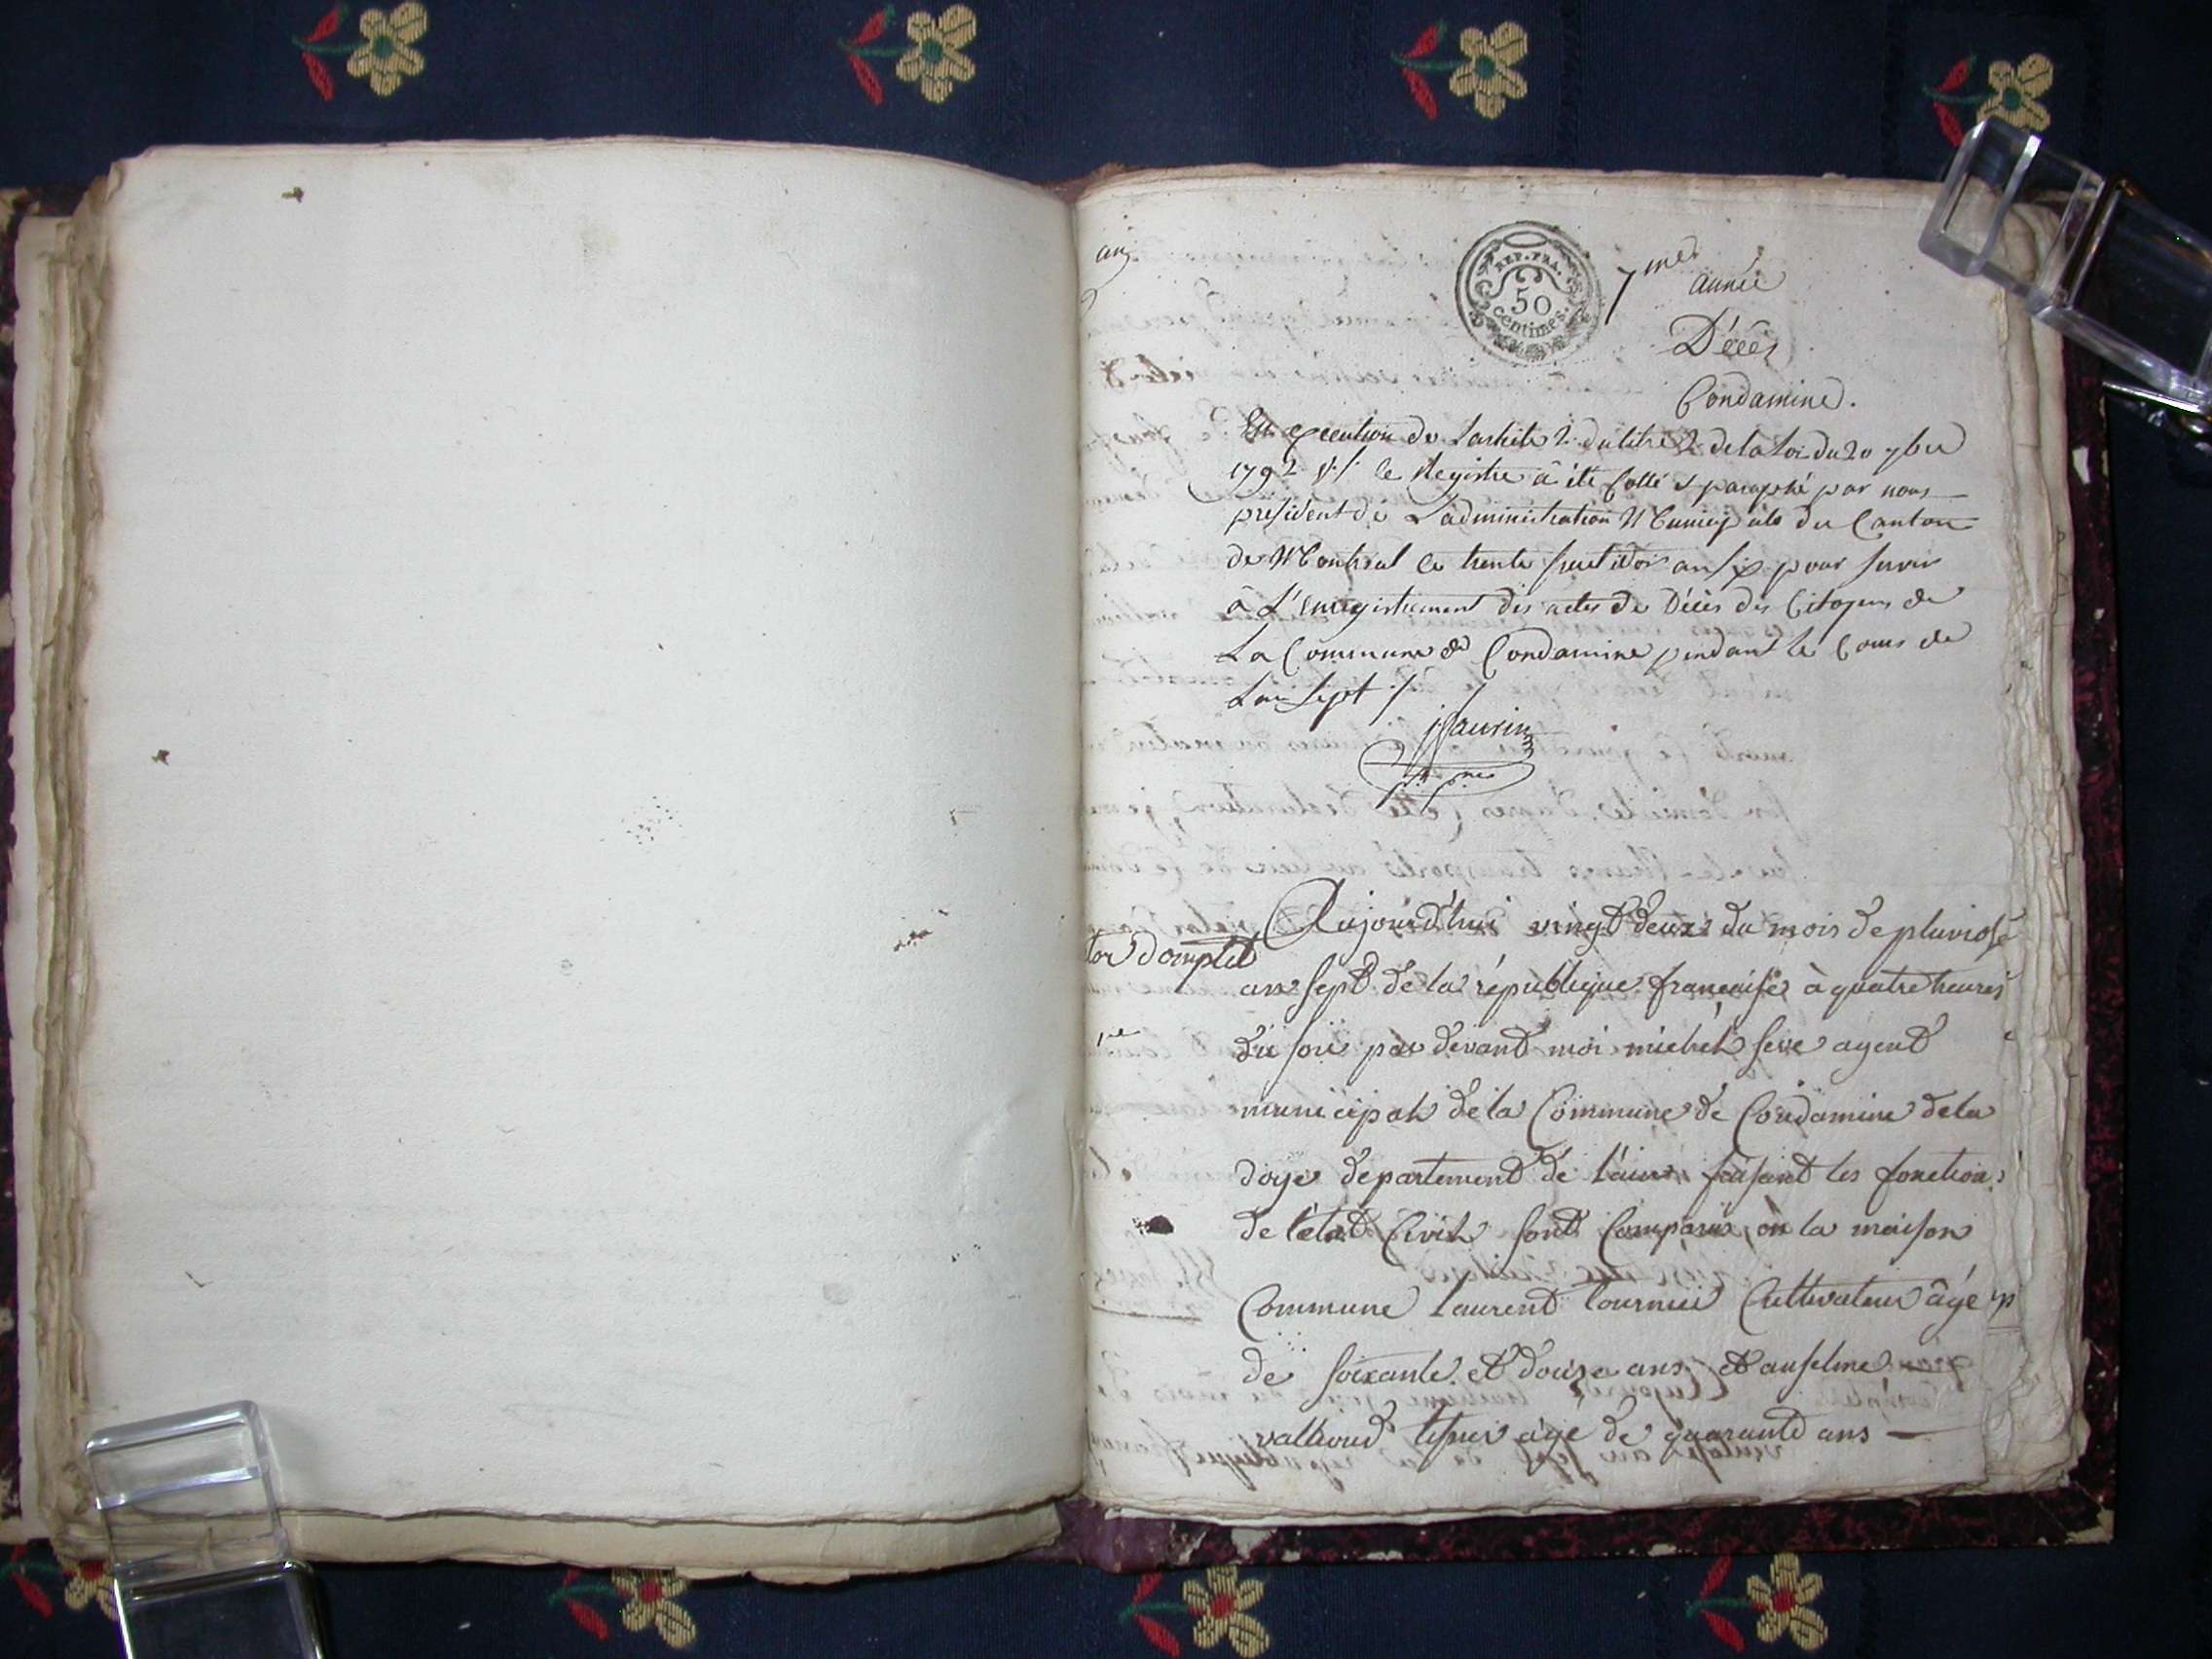 an
REP. FRA.
50
centimes.
7me
année
Décès
Condamine.
En execution de Larticle 2. du titre 2 de la Loi du 20 7bre
1792 v.s. le Registre à été Cotté & paraphé par nous
president de Ladministration Municipale du Canton
de Montreal le trente fructidor an six pour servir
à L'enregistrement des actes de Décès des Citoyens de
La Commune de Condamine pendant le Cours de
Lan Sept
Aujourd'hui vingt deux du mois de pluviose
an sept de la république françaises à quatre heures
du soir par devant moi michel seve agent
municipal de la Commune de Condamine de la
doye departement de l'ain faisant les fonctions
de l'état Civil sont Comparus en la maison
Commune laurent tournier Cultivateur âgé
de soixante et douze ans et anselme
valliend agé de quarante ans